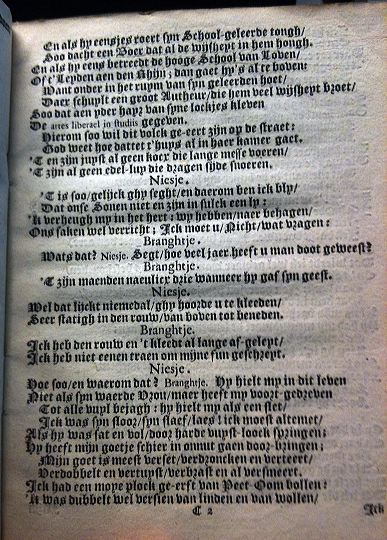 En als hy eensjes roert syn School-geleerde tongh/
Soo dacht een Boer dat al de wijsheyt in hem hongh.
En als hy eens betreedt de hooge School van Loven/
Of t'Leyden aen den Rhijn; dan gaet hy's al te boven:
Want onder in het ruym van syn geleerden hoet/
Daer schuylt een groot Autheur/die hem veel wijsheyt broet/
Soo dat aen yder hayr van syne lockjes kleven
De artes liberael in studiis gegeven.
Hierom soo wil dit volck ge-eert zijn op de straet:
God weet hoe dattet t'huys al in haer kamer gaet.
'T en zijn juyst al geen kocx die lange messe voeren/
'T zijn al geen edel-luy die dragen sijde snoeren.
Niesje.
'T is soo/gelijck ghy seght/en daerom ben ick bly/
Dat onse Sonen niet en zijn in sulck een ly:
'k verheugh my in het hert: wy hebben/naer behagen/
Ons saken wel verricht; Ick moet u/Nicht/wat vragen:
Branghtje.
Wats dat? Niesje. Segt/hoe veel jaer heeft u man doot geweest?
Branghtje.
'T zijn maenden naeulicx drie wanneer hy gaf syn geest.
Niesje.
Wel dat lijckt niemedal/ghy hoorde u te kleeden/
Seer statigh in den rouw/van boven tot beneden.
Branghtje.
Ick heb den rouw en 't kleedt al lange af-geleyt/
Ick heb niet eenen traen om mijne sun geschreyt.
Niesje.
Hoe soo/en waerom dat? Branghtje. Hy hielt my in dit leven
Niet als syn waerde Vrou/maer heeft my voort-gedreven
Tot alle vuyl bejagh: hy hielt my als een slet/
Ick was syn sloor/syn slaef/laes! ick moest altemet
Als hy was sat en vol/door harde vuyst-loock springen;
Hy heeft mijn goetje schier in onnut gaen door-bringen;
Mijn goet is meest verset/verdroncken en verteert/
Verdobbelt en vertuyst/verbrast en al versmeert.
Ick had een moye plock ge-erft van Peet-Oom vollen:
'K was dubbelt wel versien van linden en van wollen/
C 2
Ick